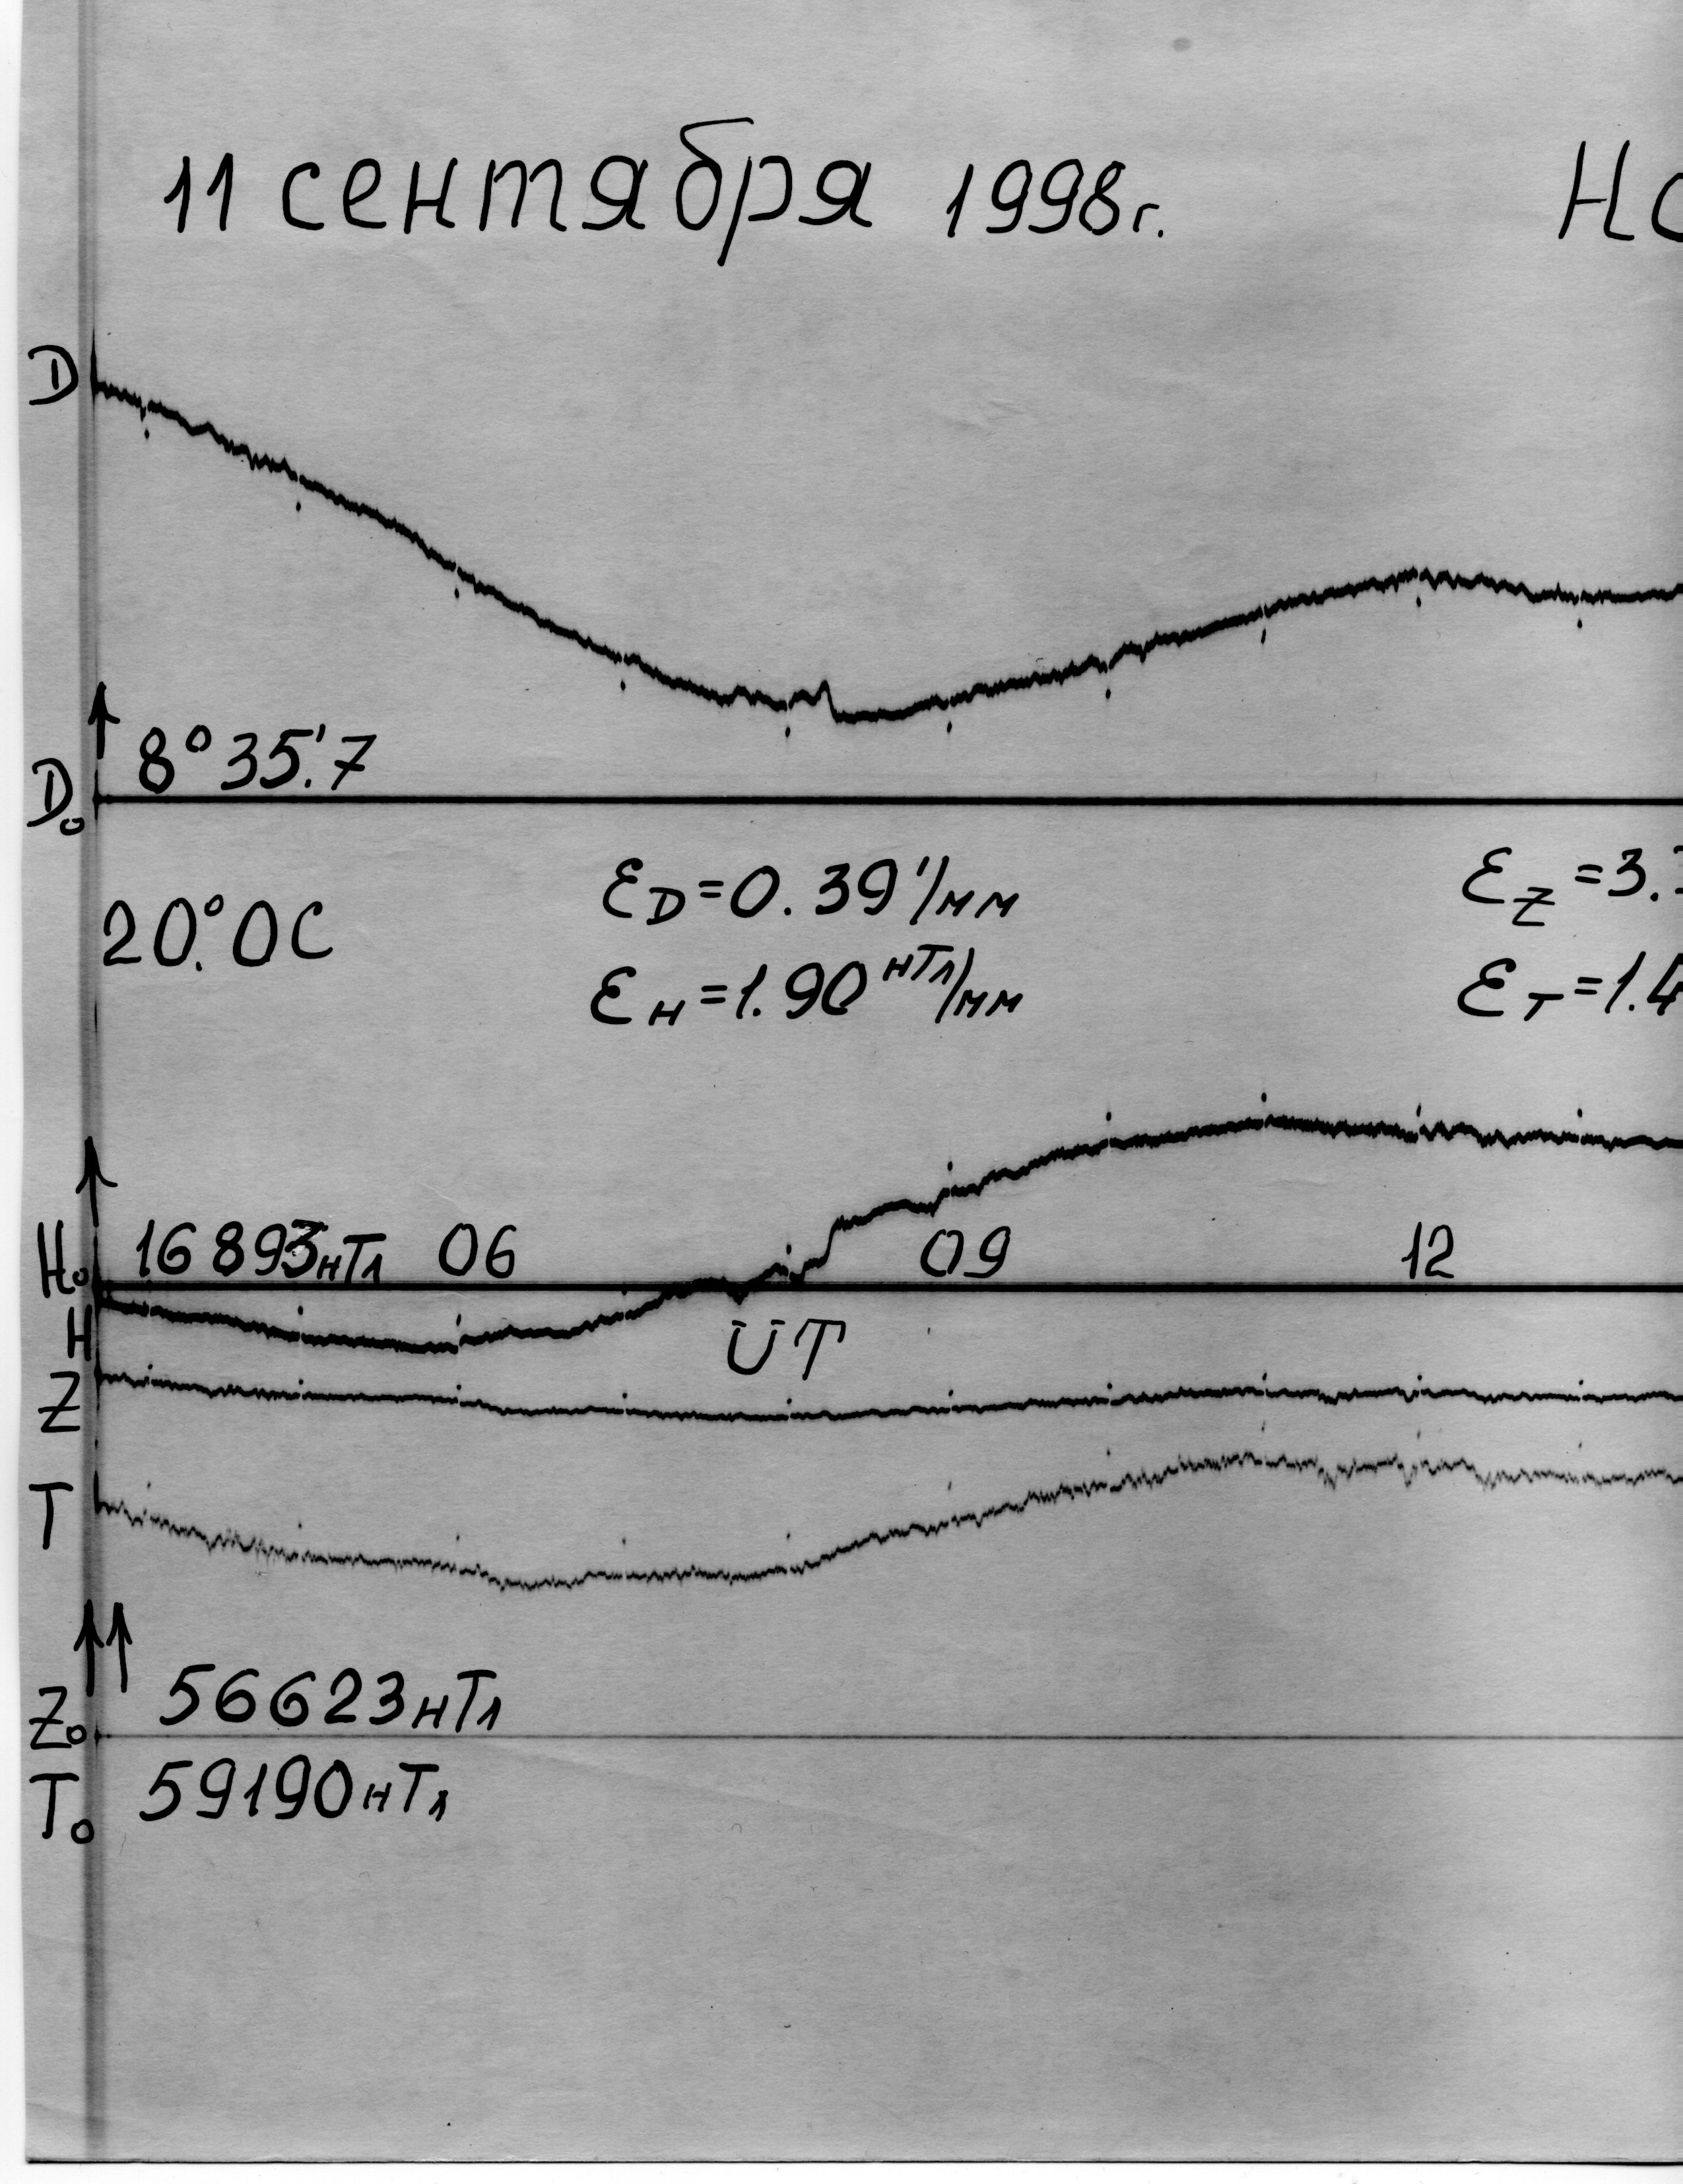 11 сентября 1998г.
D
8°35.'7
D₀
20.°0С
ε_D=0.39'/мм
ε_H=1.90 нТл/мм
ε_Z=3.
ε_T=1.4
H₀ 16893нТл 06 09 12
H
UT
Z
T
Z₀ 56623нТл
T₀ 59190нТл